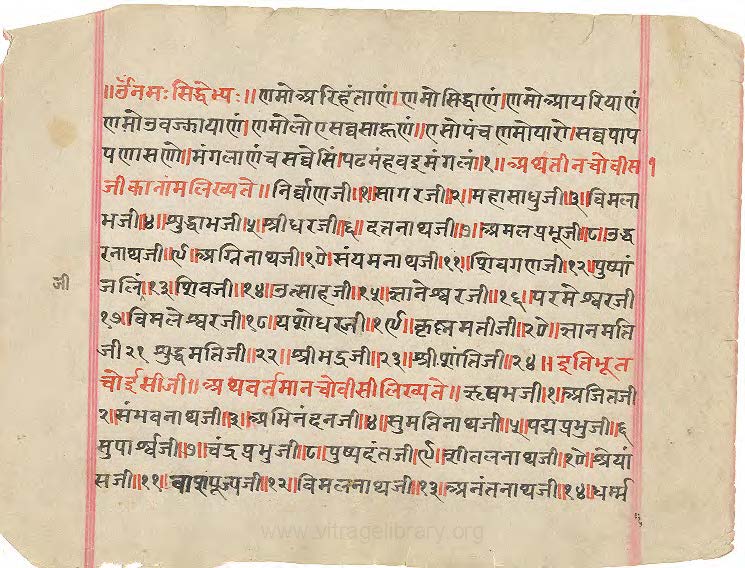 ॥ॐनमः सिद्धेभ्यः॥ णमोअरिहंताणं। णमोसिद्धाणं। णमोआयरियाणं
णमोउवज्झायाणं। णमोलोएसव्वसाहूणं॥ एसोपंचणमोयारो। सव्वपाप
पणासणो। मंगलाणंचसव्वेसिं। पढमंहवइमंगलं।१॥ अथतीनचोवीस १
जीकानामलिख्यते॥ निर्व्वाणजी॥१॥सागरजी॥२॥ महासाधुजी॥३॥ विमला
भजी॥४॥ शुद्धाभजी॥५॥ श्रीधरजी॥६॥ दत्तनाथजी॥७॥ अमलप्रभूजी॥८॥ उद्ध
रनाथजी॥९॥ अग्निनाथजी॥१०॥ संयमनाथजी॥११॥ शिवगणजी॥१२॥ पुष्पां
जलि॥१३॥ शिवजी॥१४॥ उत्साहजी॥१५॥ ज्ञानेश्वरजी॥१६॥ परमेश्वरजी
१७॥ विमलेश्वरजी॥१८॥ यशोधरजी॥१९॥ कृष्णमतीजी॥२०॥ ज्ञानमति
जी २१ शुद्धमतिजी॥२२॥ श्रीभद्रजी॥२३॥ श्रीशांतिजी॥२४॥ इतिभूत
चोईसीजी॥ अथवर्तमानचोवीसीलिख्यते॥ ऋषभजी॥१॥ अजितजी
२॥ संभवनाथजी॥३॥ अभिनंदनजी॥४॥ सुमतिनाथजी॥५॥ पद्मप्रभुजी॥६
सुपार्श्वजी॥७॥ चंद्रप्रभुजी॥८॥ पुष्पदंतजी॥९॥ शीतलनाथजी॥१०॥ श्रेयां
सजी॥११॥ वासपूज्यजी॥१२॥ विमलनाथजी॥१३॥ अनंतनाथजी॥१४॥ धर्म्म
जी
www.vitragelibrary.org